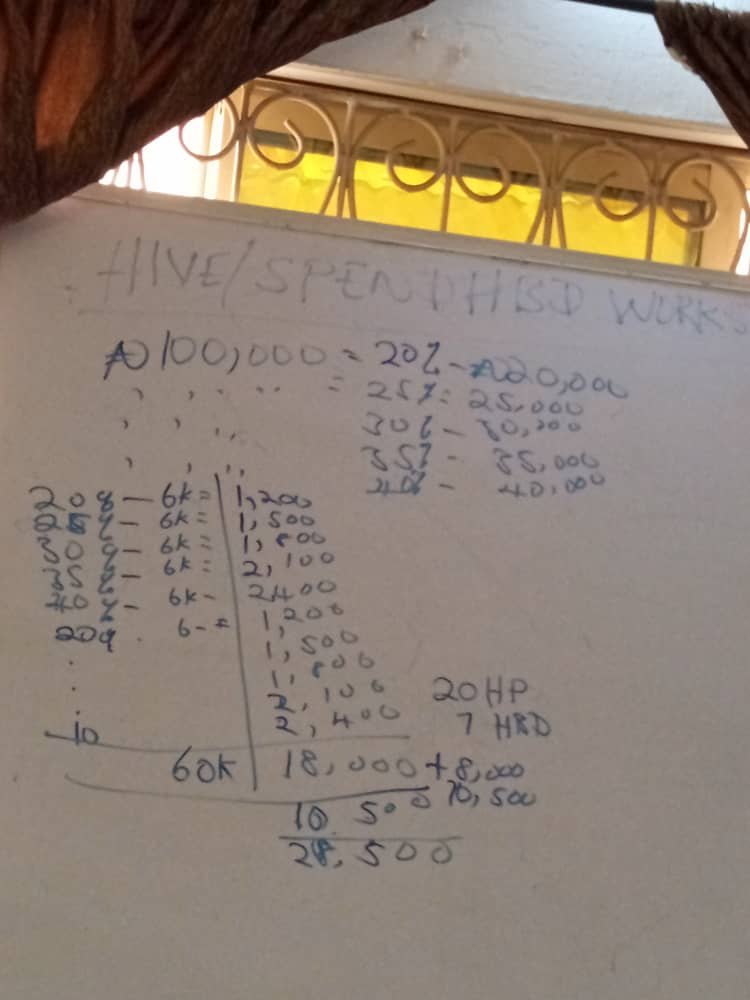 HIVE/SPENDHBD WORKS
₦100,000 = 20% - ₦20,000
, , .. .. = 25% = 25,000
, , ,, 30% - 30,000
, , ,, 35% - 35,000
40% - 40,000
20% - 6k = 1,200
25% - 6k = 1,500
30% - 6k = 1,800
35% - 6k = 2,100
40% - 6k - 2400
20% . 6 - = 1,200
. 1,500
. 1,800
. 2,100 20 HP
10 2,400 7 HBD
60k 18,000 + 8,000
10,500
10.500
28.500